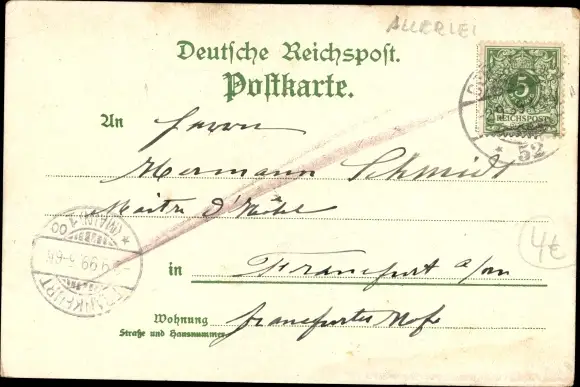 ALLERLEI
Deutsche Reichspost.
Postkarte.
5
REICHSPOST
52
An Herrn
Hermann Schmidt
Maitre d'Hôtel
(MAIN) 1
FRANKFURT
4€
in Frankfurt a/m
Wohnung Frankfurter Hof
Straße und Hausnummer